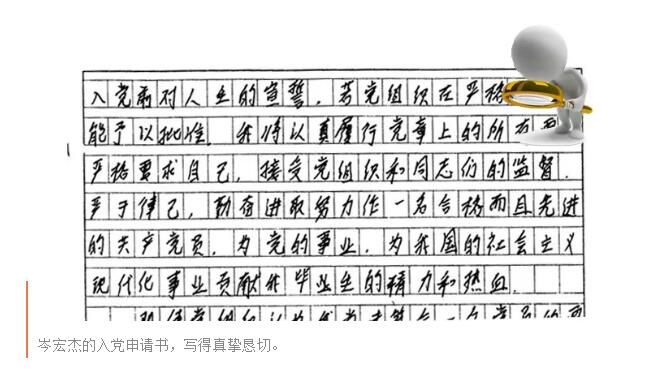 入党前对人生的宣誓。若党组织在严格
能予以批准，我将认真履行党章上的所有要
严格要求自己，接受党组织和同志们的监督，
严于律己，勤奋进取努力作一名合格而且先进
的共产党员，为党的事业，为我国的社会主义
现代化事业贡献我毕业生的精力和热血。
岑宏杰的入党申请书，写得真挚恳切。